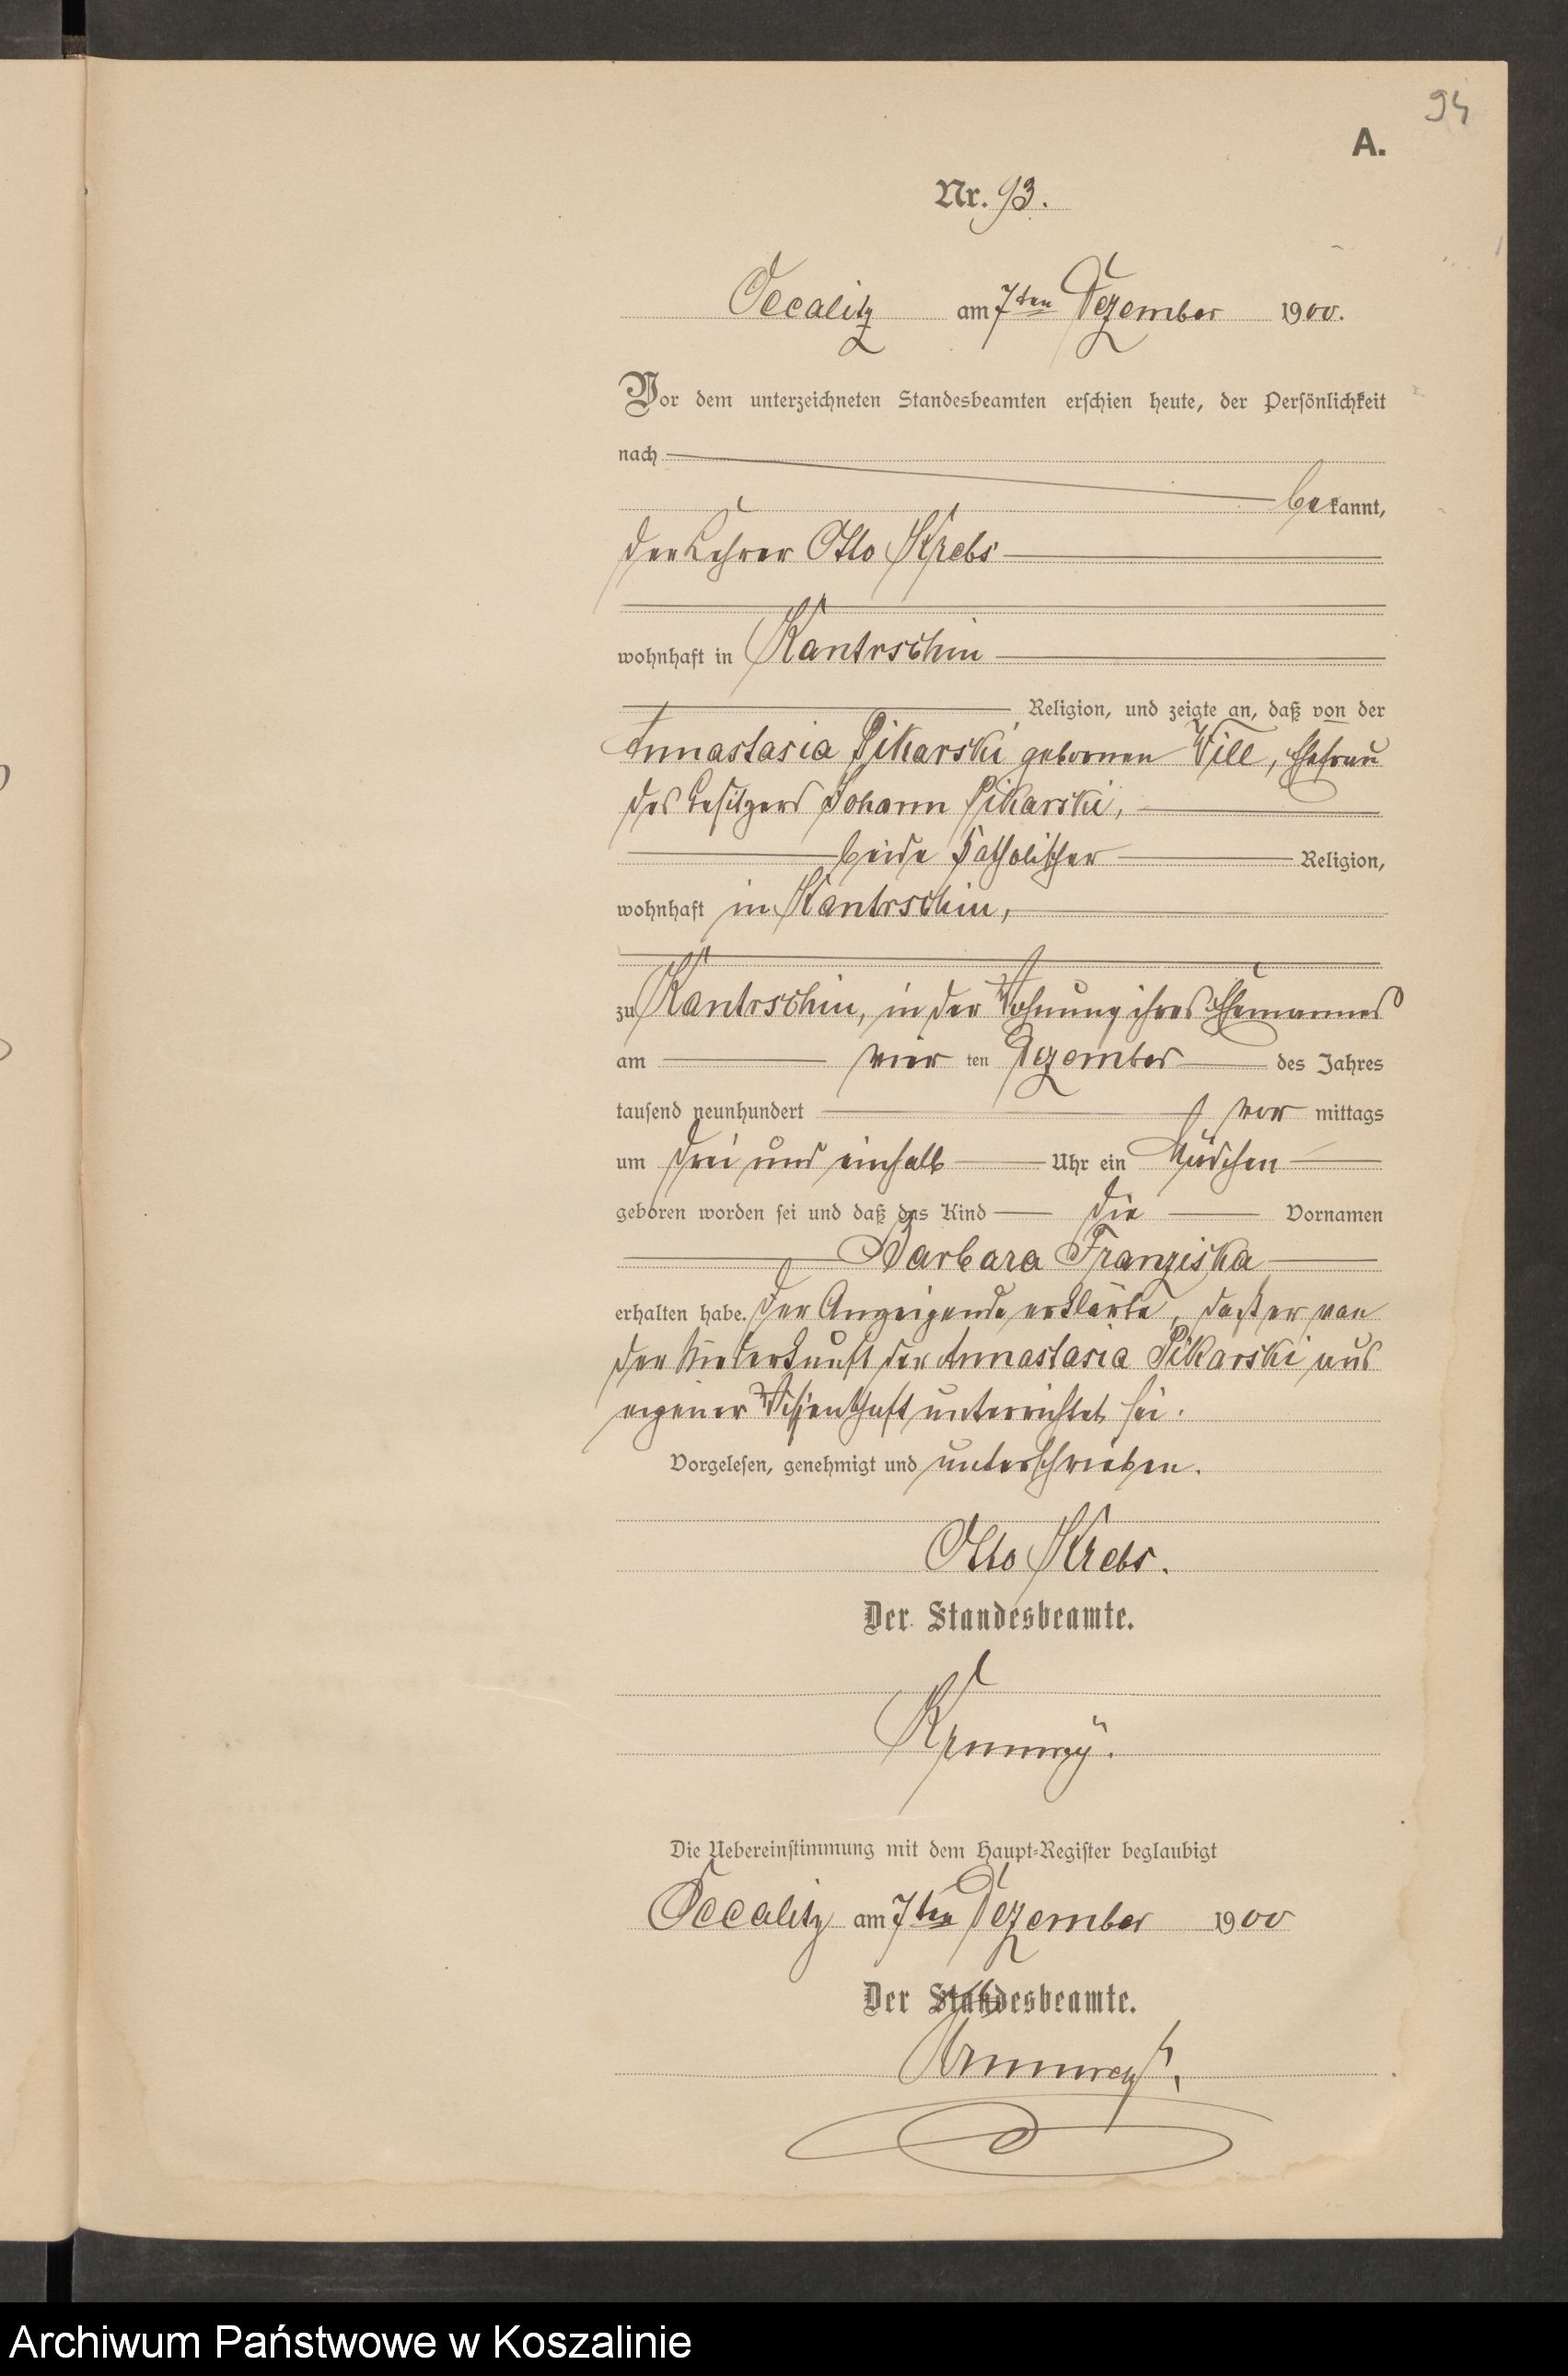 94
A.
Nr. 93.
Occalitz am 7ten Dezember 1900.
Vor dem unterzeichneten Standesbeamten erschien heute, der Persönlichkeit
nach
bekannt,
der Lehrer Otto Krebs
wohnhaft in Kantrschin
Religion, und zeigte an, daß von der
Annastasia Pikarski gebornen Will, Ehefrau
des Besitzers Johann Pikarski,
beide katholischer Religion,
wohnhaft in Kantrschin,
zu Kantrschin, in der Wohnung ihres Ehemannes
am vier ten Dezember des Jahres
tausend neunhundert vor mittags
um drei und einhalb Uhr ein Mädchen
geboren worden sei und daß das Kind die Vornamen
Barbara Franziska
erhalten habe. Der Anzeigende erklärte, daß er von
der Niederkunft der Annastasia Pikarski aus
eigener Wissenschaft unterrichtet sei.
Vorgelesen, genehmigt und unterschrieben.
Otto Krebs.
Der Standesbeamte.
Die Uebereinstimmung mit dem Haupt-Register beglaubigt
Occalitz am 7ten Dezember 1900
Der Standesbeamte.
Archiwum Państwowe w Koszalinie